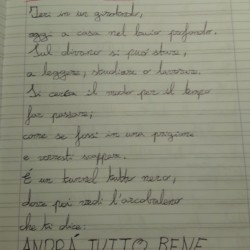 Ieri in un girotondo,
oggi a casa nel buio profondo.
Sul divano si può stare,
a leggere, studiare o lavorare.
Si cerca il modo per il tempo
far passare;
come se fossi in una prigione
e vorresti scappare.
È un barrel tutto nero,
dove poi vedi l'arcobaleno
che ti dice:
ANDRÀ TUTTO BENE